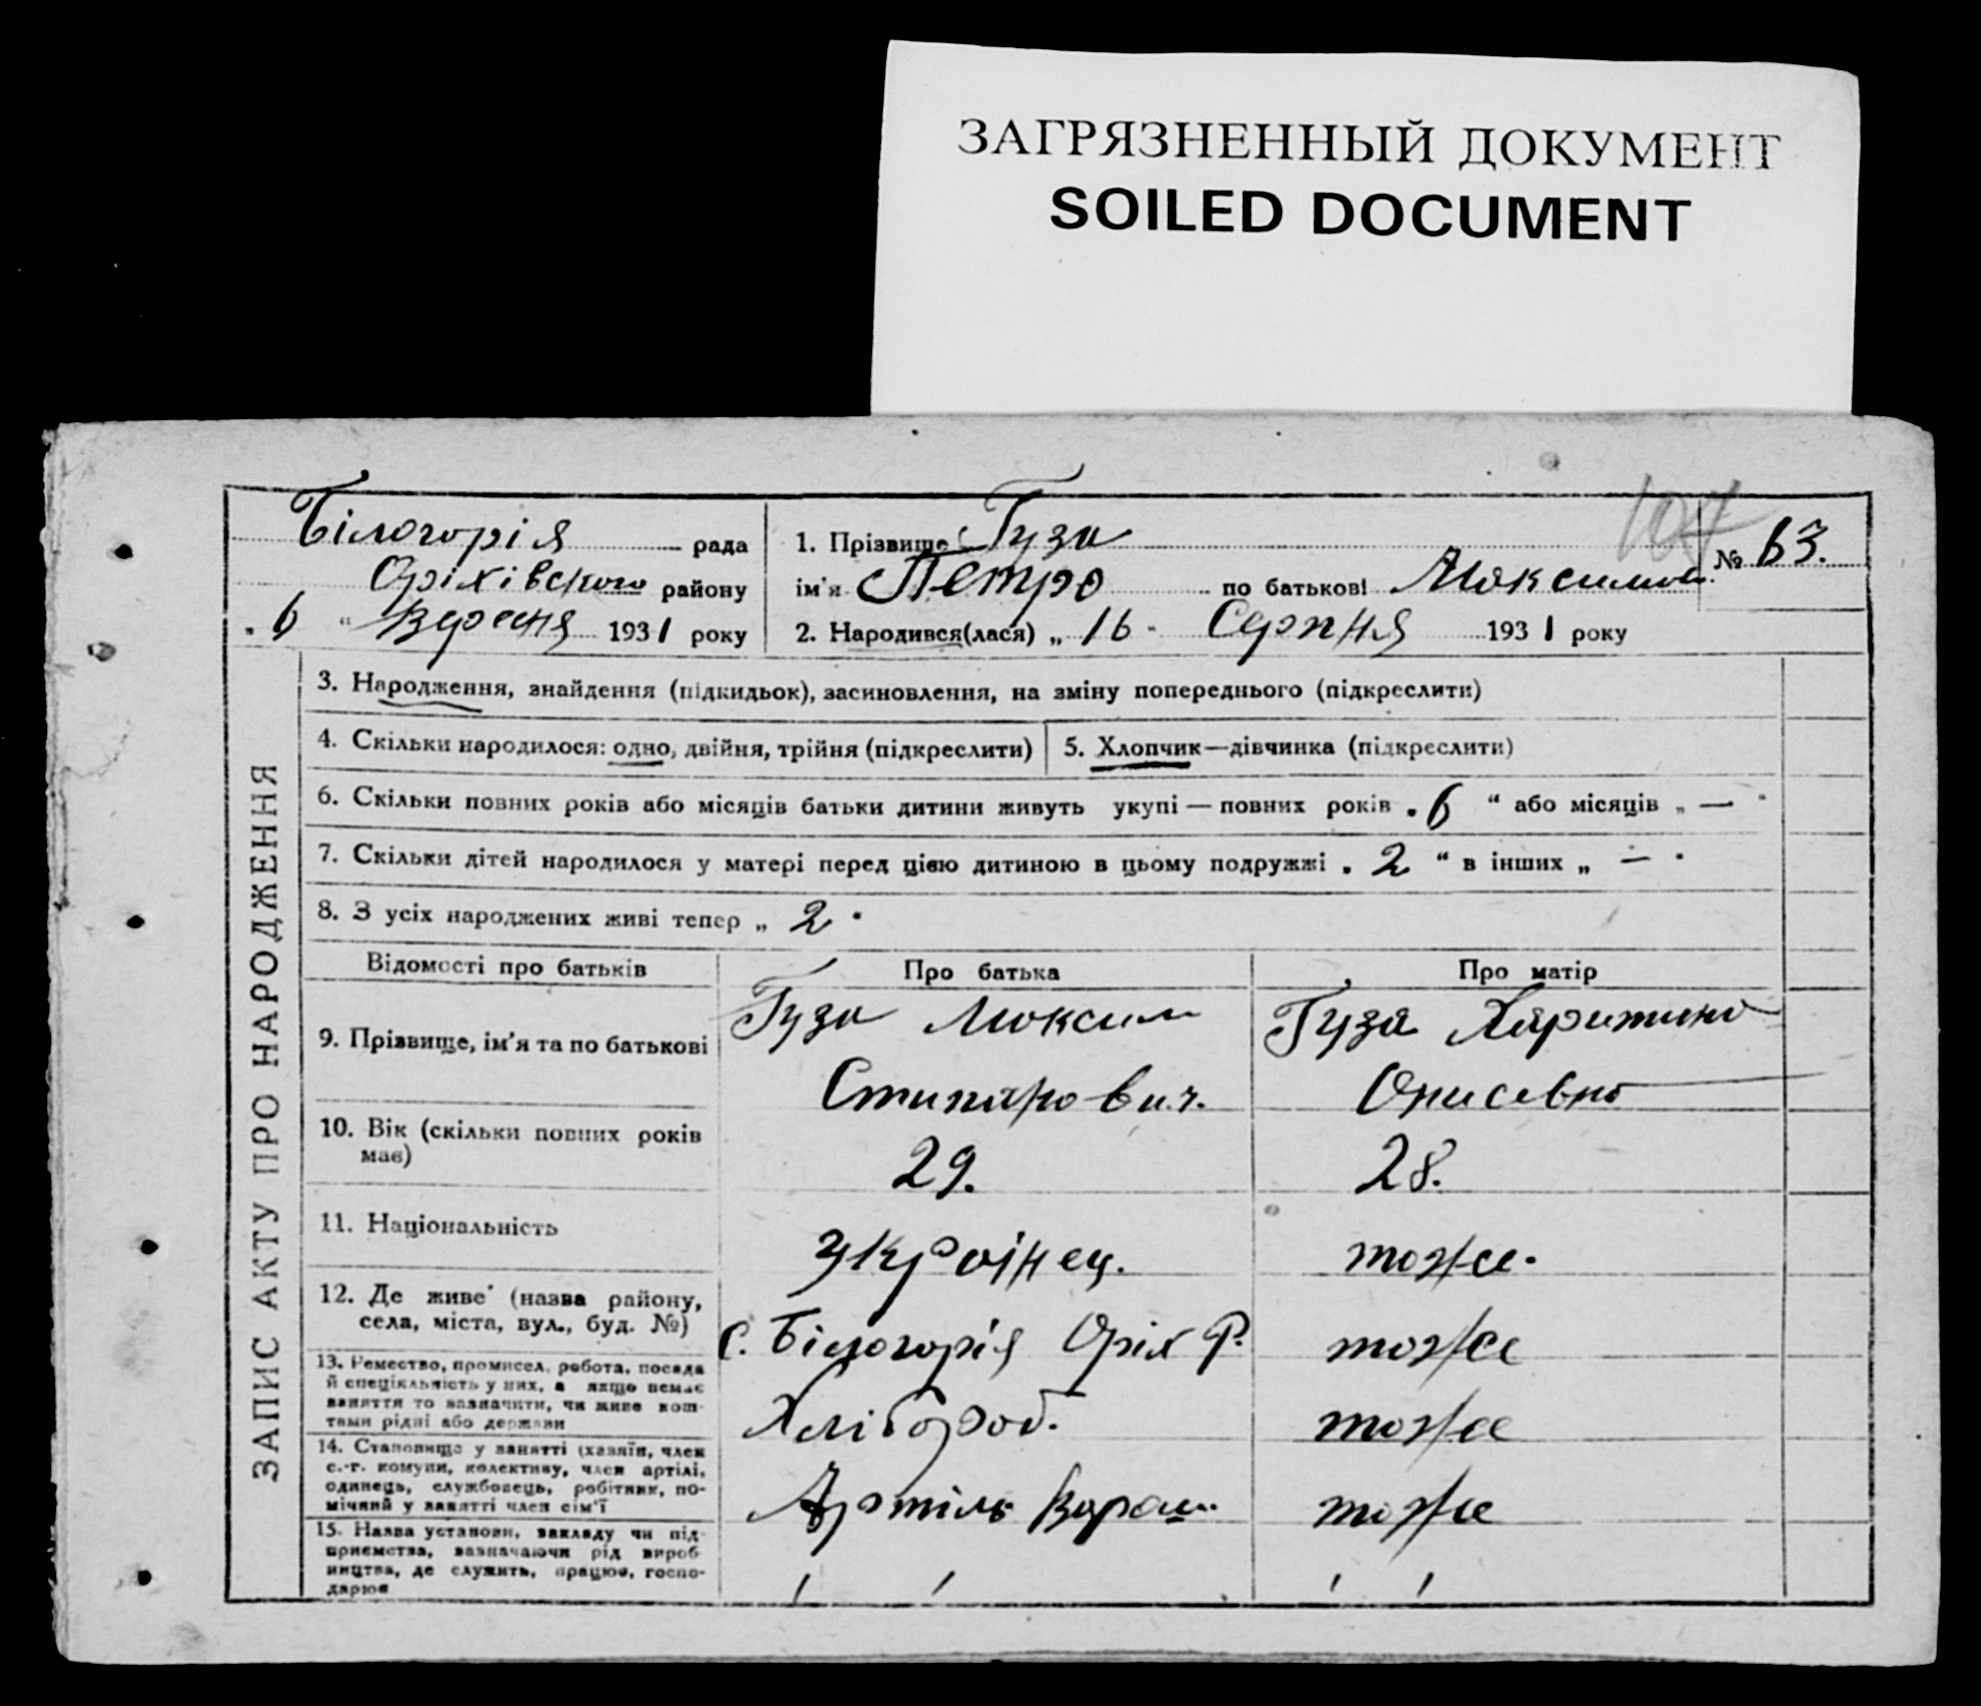 ЗАГРЯЗНЕННЫЙ ДОКУМЕНТ
SOILED DOCUMENT
Білогорія рада
Оріхівського району
„ 6 “ Вересня 1931 року
1. Прізвище Гуза
ім'я Петро по батькові Максимов.
№ 63.
2. Народився(лася) „ 16 - Серпня 1931 року
ЗАПИС АКТУ ПРО НАРОДЖЕННЯ
3. Народження, знайдення (підкидьок), засиновлення, на зміну попереднього (підкреслити)
4. Скільки народилося: одно, двійня, трійня (підкреслити)
5. Хлопчик—дівчинка (підкреслити)
6. Скільки повних років або місяців батьки дитини живуть укупі — повних років „ 6 “ або місяців „ — “
7. Скільки дітей народилося у матері перед цією дитиною в цьому подружжі „ 2 “ в інших „ — “
8. З усіх народжених живі тепер „ 2 “
Відомості про батьків Про батька Про матір
9. Прізвище, ім'я та по батькові
Гуза Максим
Гуза Харитина
Онисевна
10. Вік (скільки повних років має)
29.
28.
11. Національність
Українец.
тоже.
12. Де живе (назва району,
села, міста, вул., буд. №)
с. Білогорія Оріх Р.
тоже
13. Ремество, промисел, робота, посада
й спеціяльність у них, а якщо немає
заняття то зазначити, чи живе кош-
тами рідні або держави
Хлібороб.
тоже
14. Становище у занятті (хазяїн, член
с.-г. комуни, колективу, член артілі,
одинець, службовець, робітник, по-
мічний у занятті член сім'ї
Артіль
тоже
15. Назва установи, закладу чи під-
приємства, зазначаючи рід вироб-
ництва, де служить, працює, госпо-
дарює